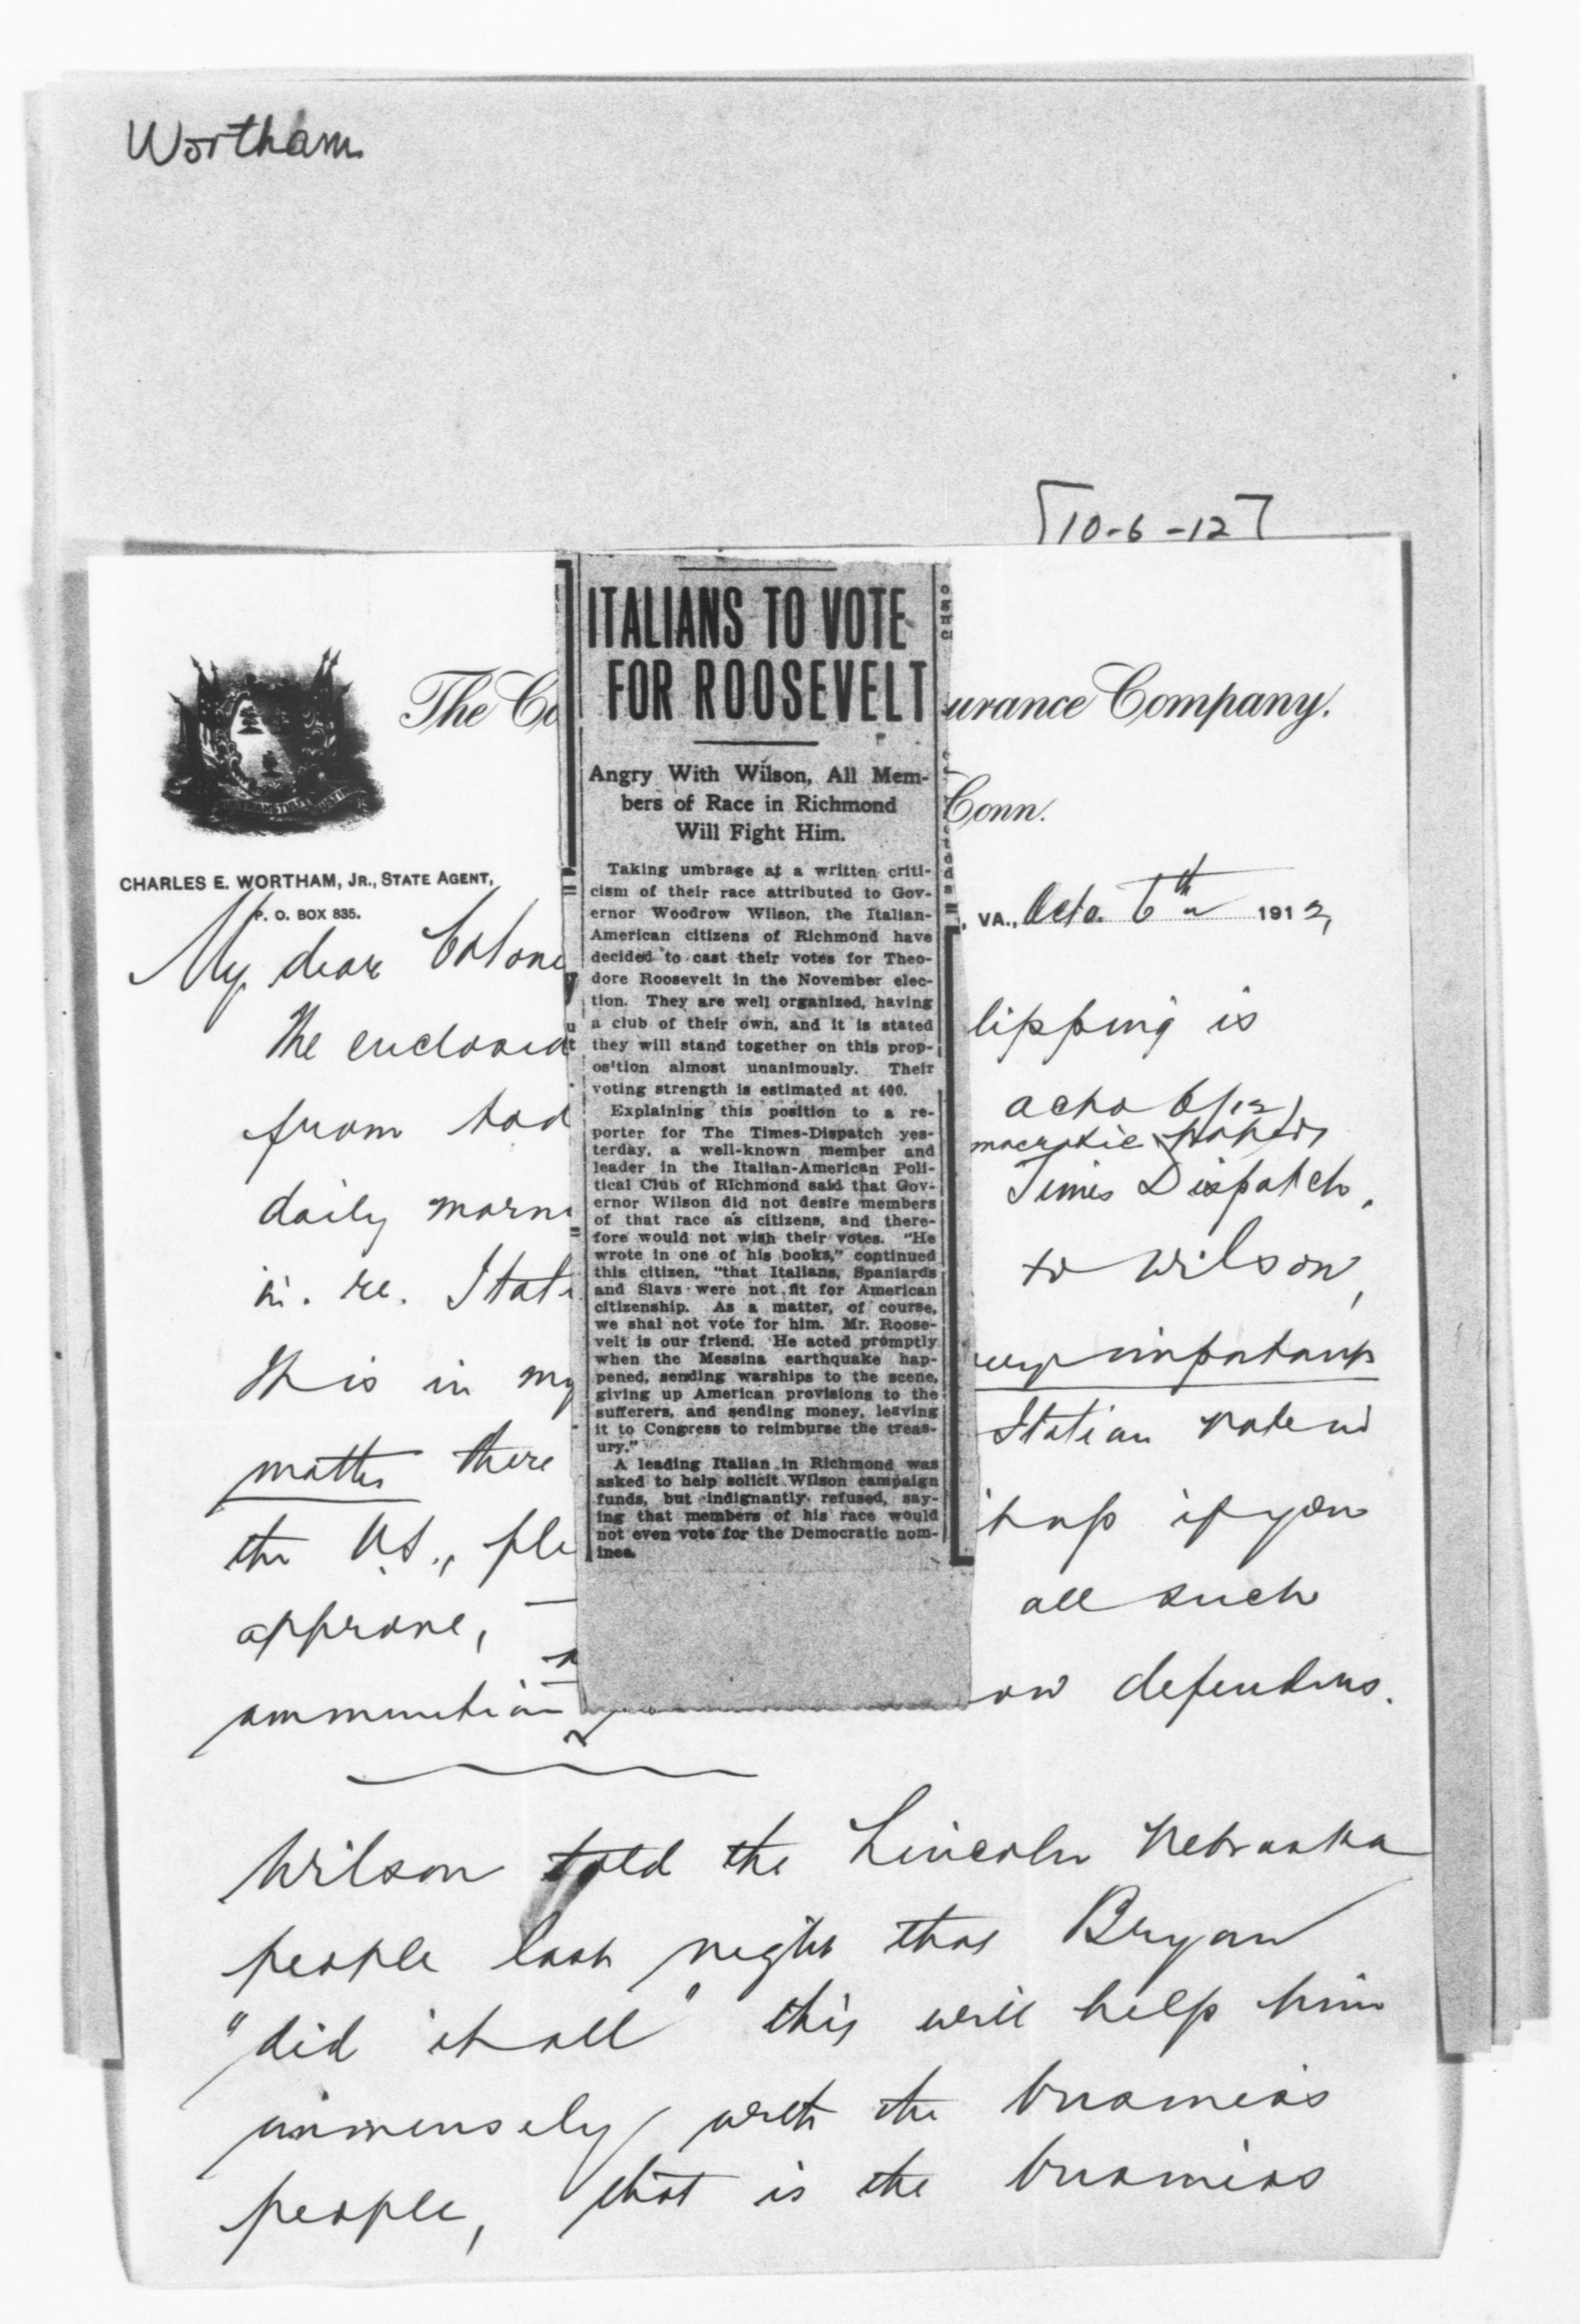 Wortham
[10-6-12]
The Co
urance Company.
Conn.
CHARLES E. WORTHAM, JR., STATE AGENT,
P. O. BOX 835.
VA., Octo. 6th 1912,
My dear Colone
The enclosed
lipping is
from tod
octo 6/12)
mocratic paper,
daily morni
Times Dispatch,
in. re. Itali
to Wilson,
This in my
very important
matter there
Italian voters
the U.S., ple
if you
approve,
all such
ammunition
defenders.
ITALIANS TO VOTE
FOR ROOSEVELT
Angry With Wilson, All Mem-
bers of Race in Richmond
Will Fight Him.
Taking umbrage at a written criti-
cism of their race attributed to Gov-
ernor Woodrow Wilson, the Italian-
American citizens of Richmond have
decided to cast their votes for Theo-
dore Roosevelt in the November elec-
tion. They are well organized, having
a club of their own, and it is stated
they will stand together on this prop-
os'tion almost unanimously. Their
voting strength is estimated at 400.
Explaining this position to a re-
porter for The Times-Dispatch yes-
terday, a well-known member and
leader in the Italian-American Poli-
tical Club of Richmond said that Gov-
ernor Wilson did not desire members
of that race as citizens, and there-
fore would not wish their votes. "He
wrote in one of his books," continued
this citizen, "that Italians, Spaniards
and Slavs were not fit for American
citizenship. As a matter, of course,
we shal not vote for him. Mr. Roose-
velt is our friend. He acted promptly
when the Messina earthquake hap-
pened, sending warships to the scene,
giving up American provisions to the
sufferers, and sending money, leaving
it to Congress to reimburse the treas-
ury."
A leading Italian in Richmond was
asked to help solicit Wilson campaign
funds, but indignantly refused, say-
ing that members of his race would
not even vote for the Democratic nom-
inee.
Wilson told the Lincoln Nebraska
people last night that Bryan
"did it all" this will help him
immensely with the business
people, that is the business